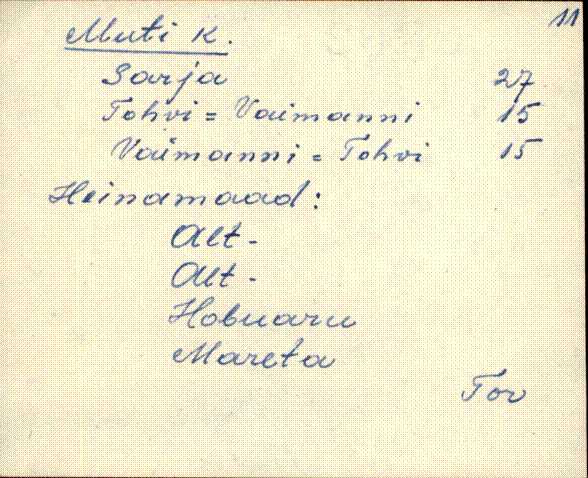 11
Muti K.
Sarja 27
Tohvi = Vaimanni 15
Vaimanni = Tohvi 15
Heinamaad:
Alt-
Alt-
Hobuaru
Mareta
Tor